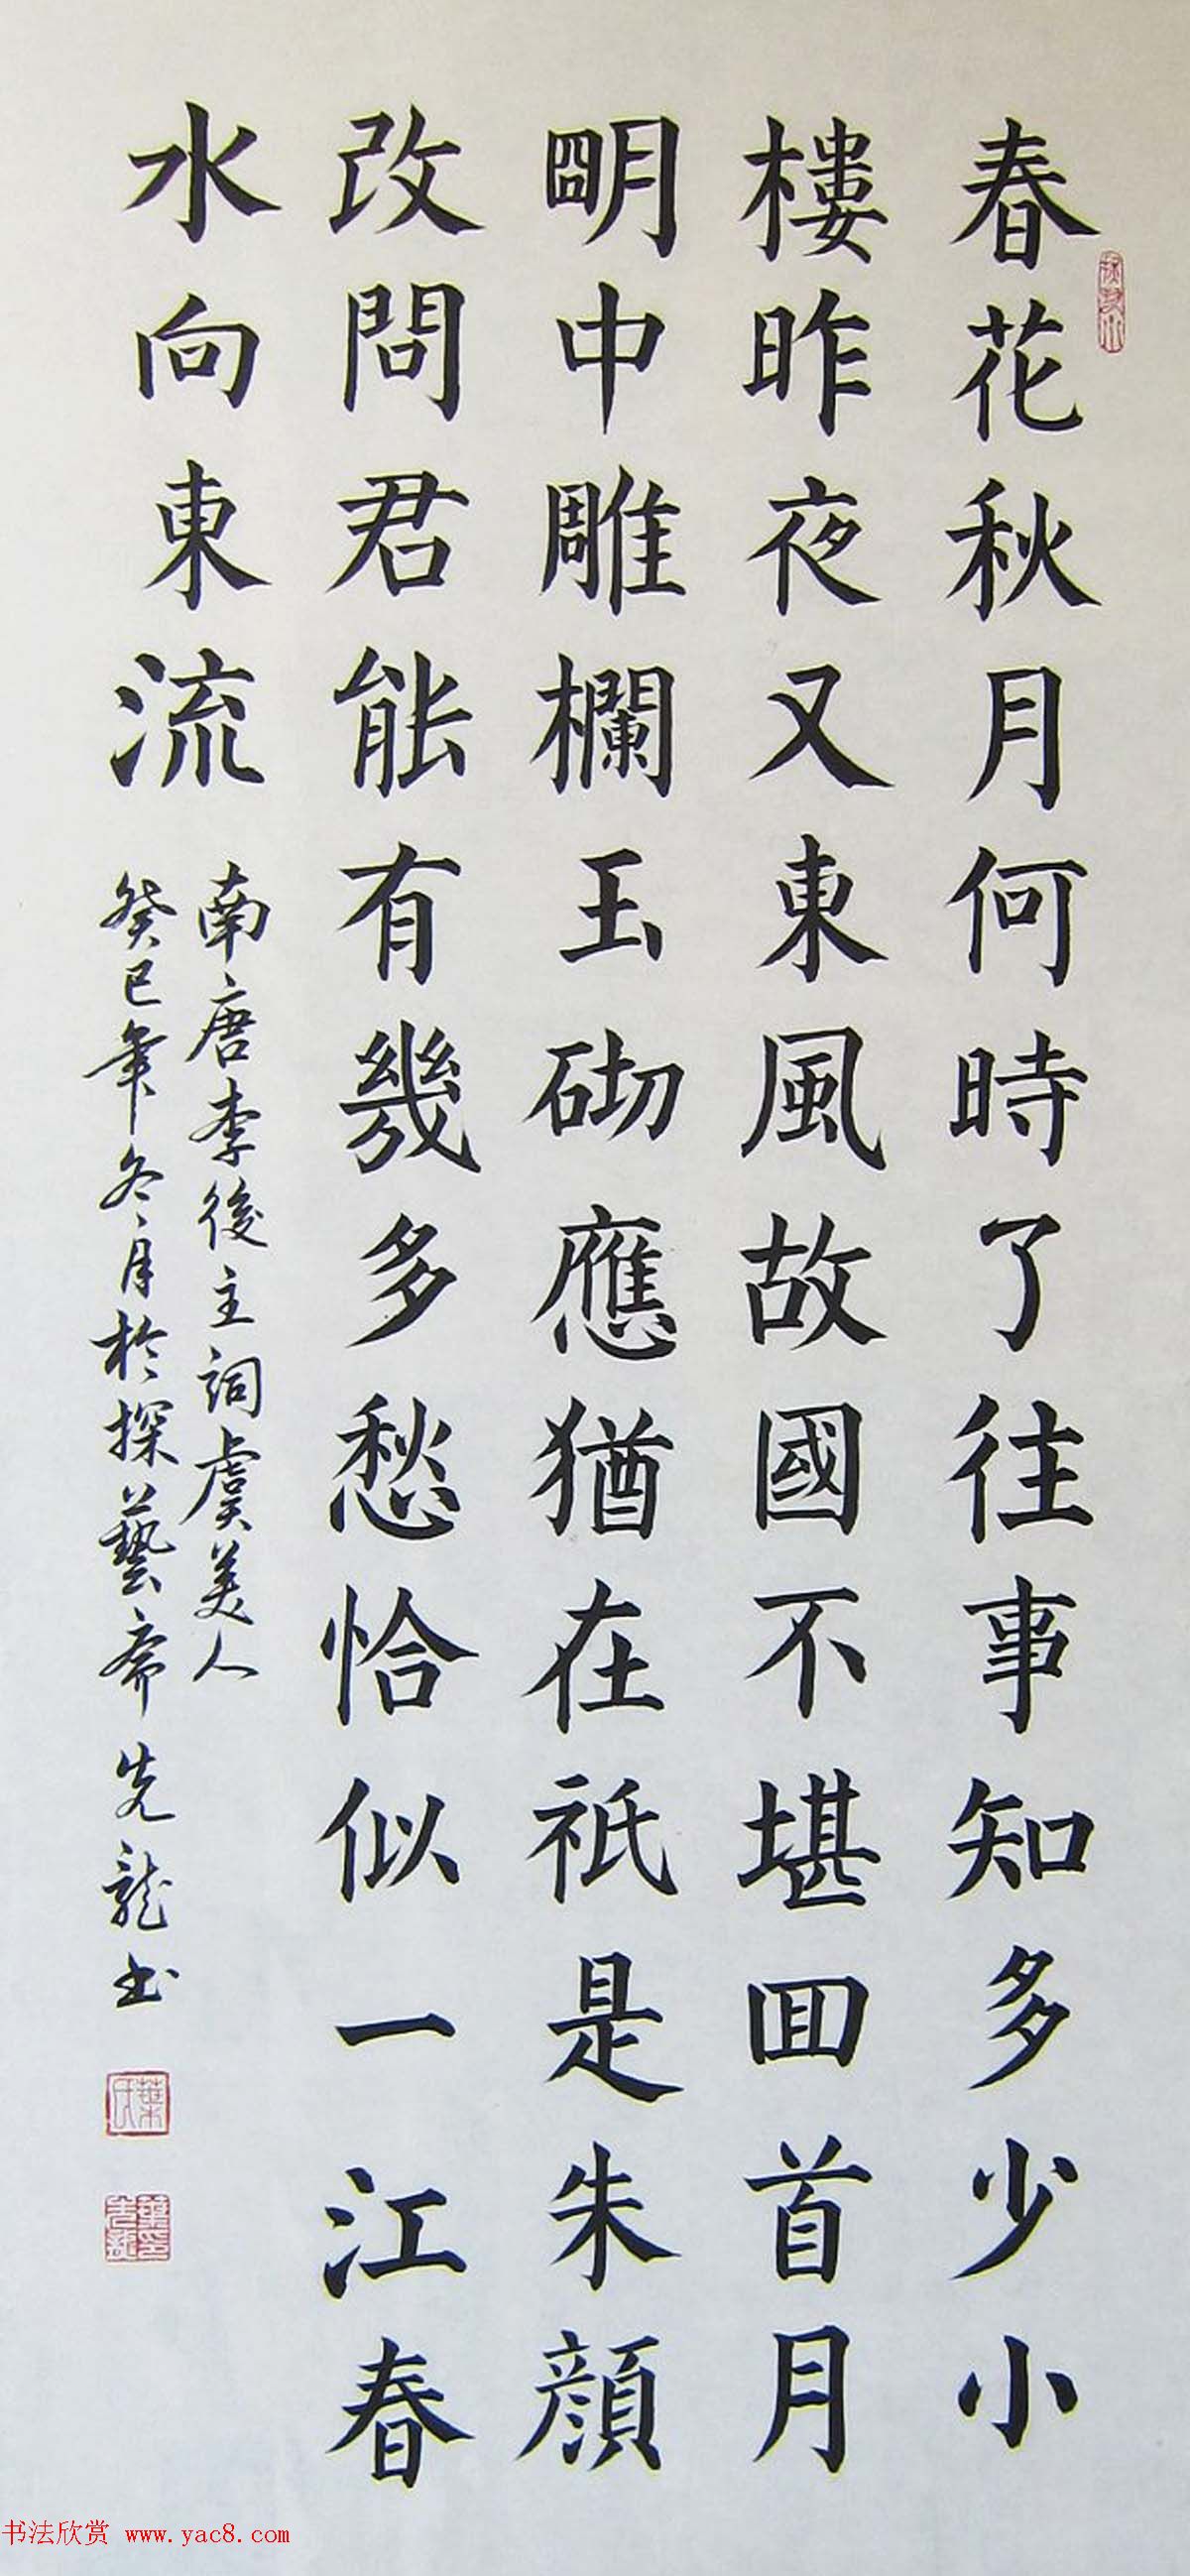 春花秋月何時了往事知多少小
樓昨夜又東風故國不堪囬首月
朙中雕欄玉砌應猶在祇是朱顔
改問君能有幾多愁恰似一江春
水向東流
南唐李後主詞虞美人
癸巳年冬月於探藝齋先龍书
葉氏
書法欣赏 www.yac8.com